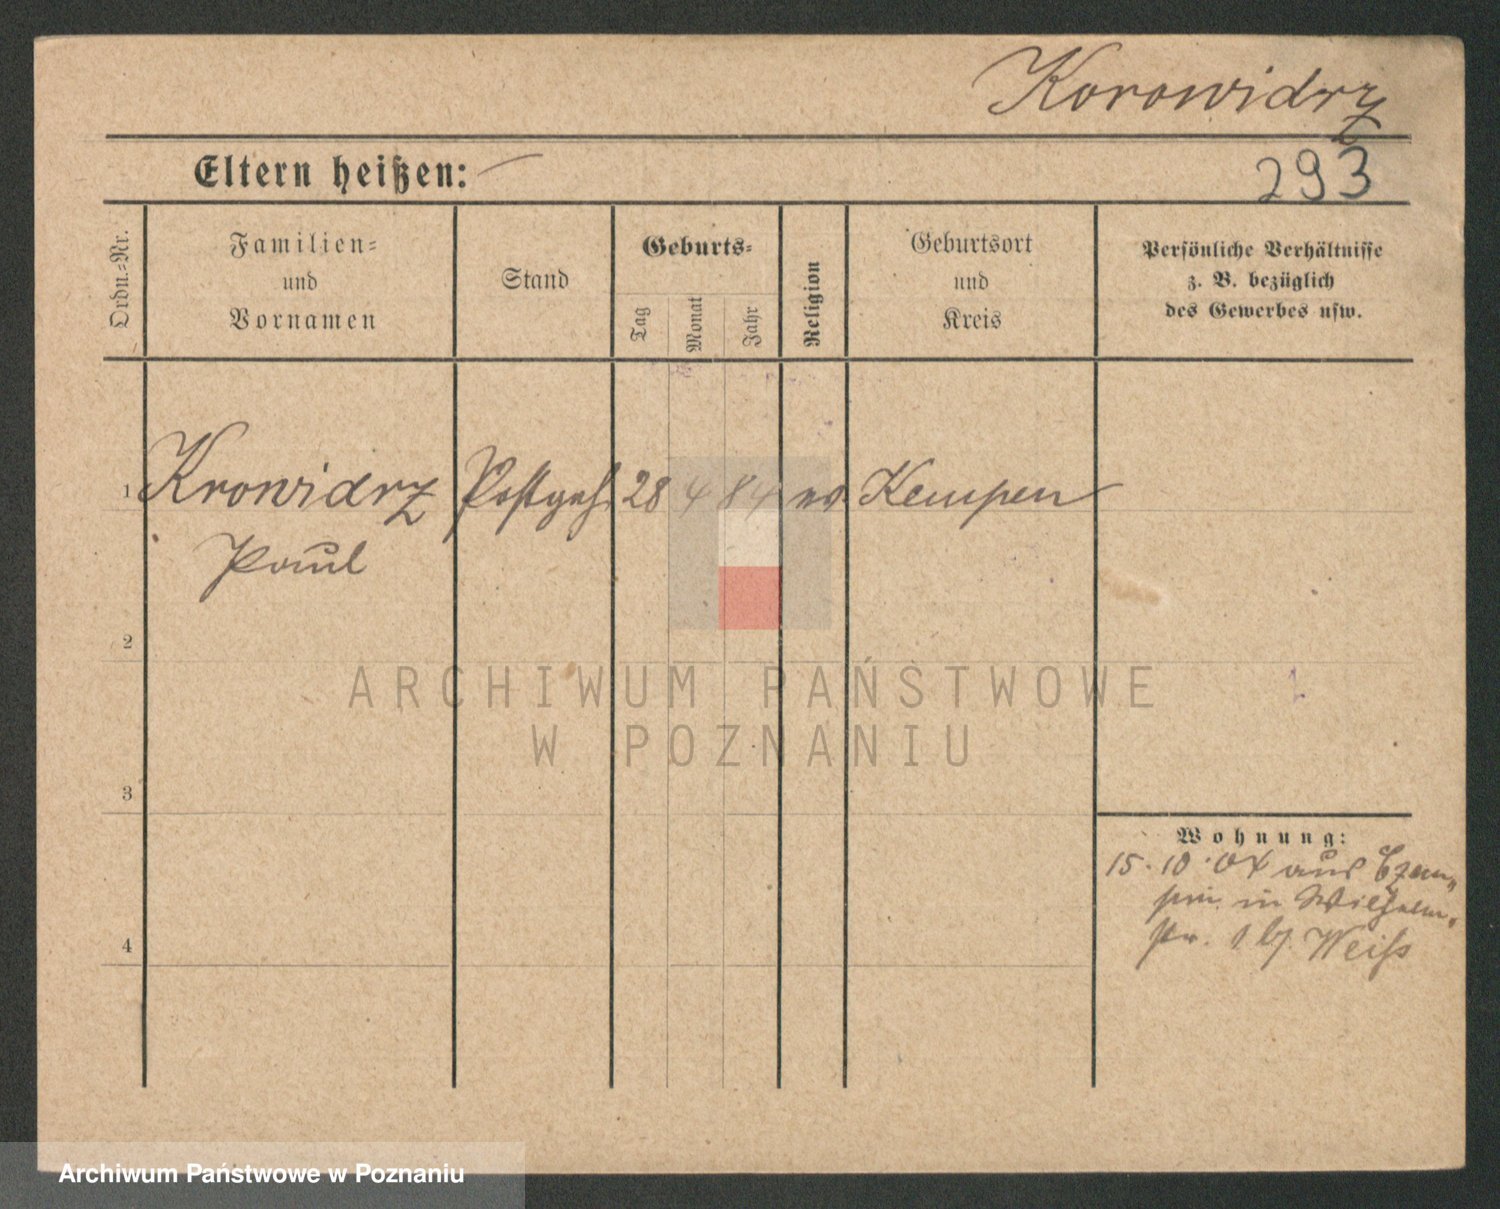 Korowidrz
Eltern heißen: —
293
Ordn.=Nr.
Familien=
und
Vornamen
Stand
Geburts=
Tag
Monat
Jahr
Religion
Geburtsort
und
Kreis
Persönliche Verhältnisse
z. B. bezüglich
des Gewerbes usw.
1 Krowidrz Postgeh. 28 4 84 ev. Kempen
Paul
2
ARCHIWUM PAŃSTWOWE
W POZNANIU
3
Wohnung:
15. 10. 04 aus
in Wilhelm-
str. 1 bj. Weiß
4
Archiwum Państwowe w Poznaniu